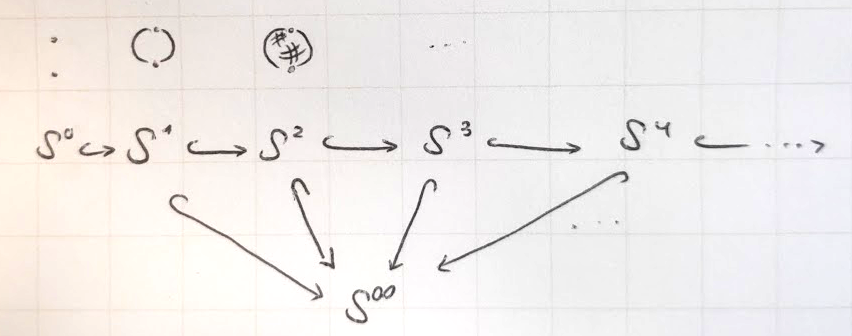 ...
S⁰ ↪ S¹ ↪ S² ↪ S³ ↪ S⁴ ↪ ...
...
S^∞